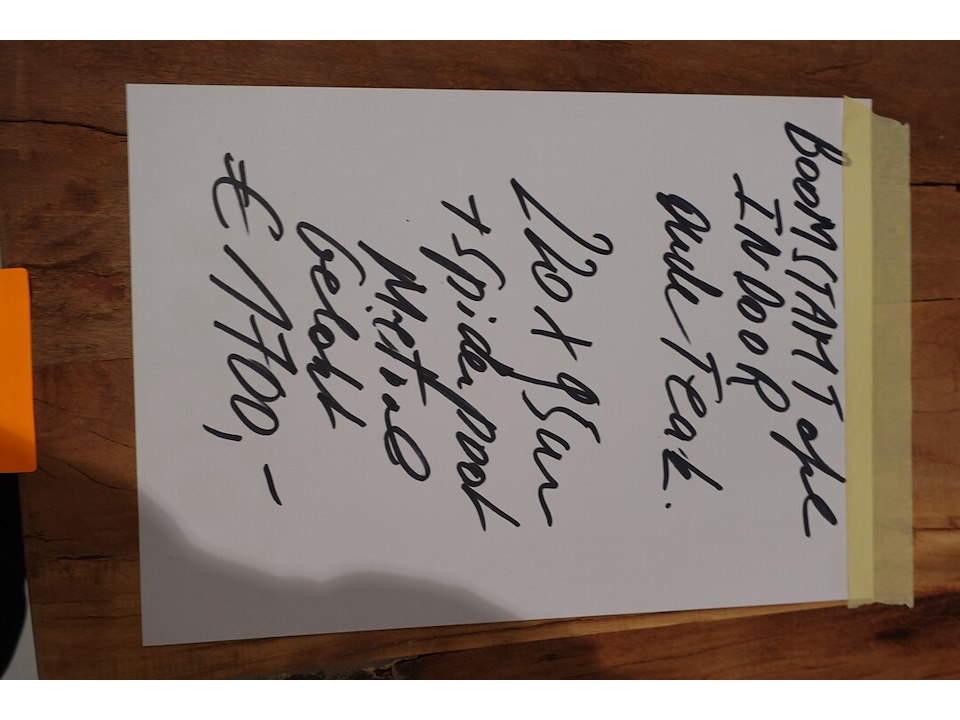 BOOMSTAMTafel
INDOOR
Oude Teak.
220 x 95cm
+ Spiderpoot
Metaal
Gelakt
€ 1700,-